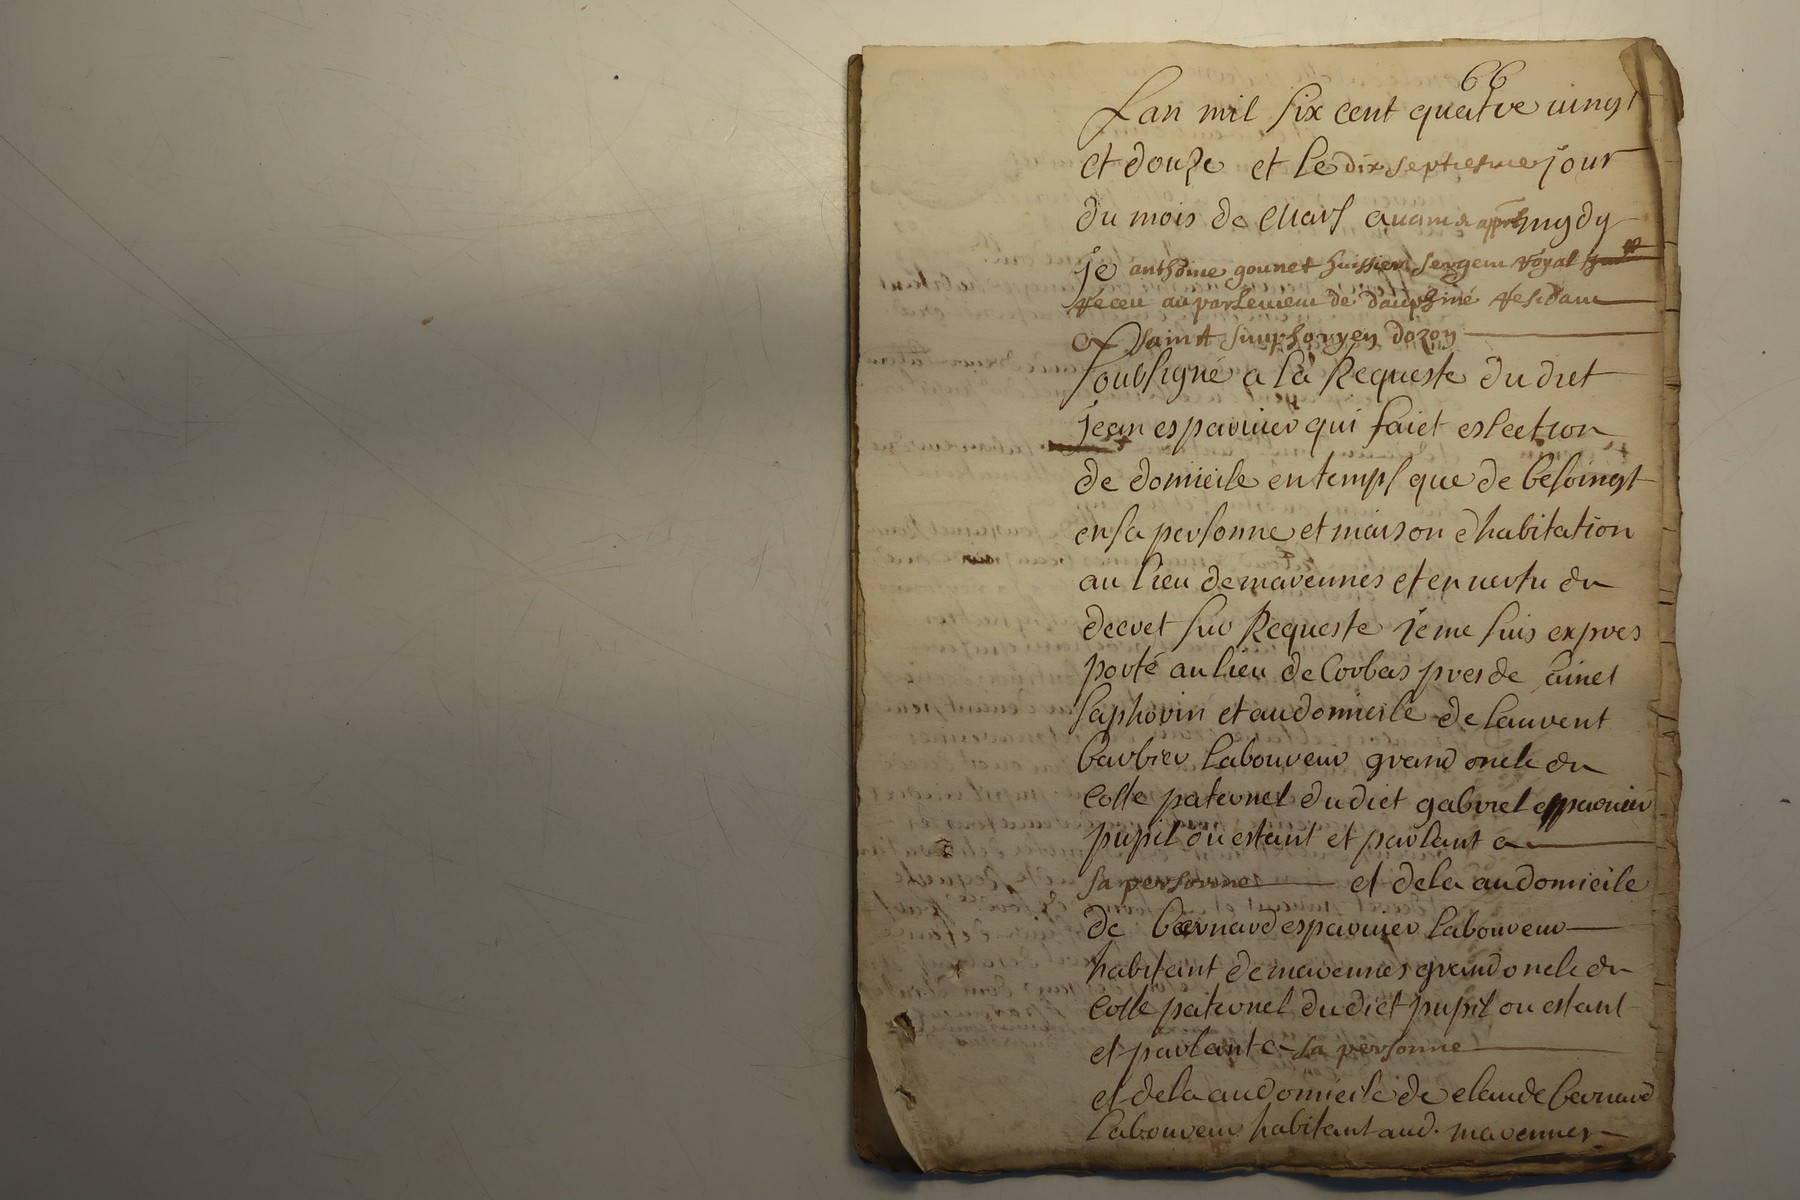 66
Lan mil six cent quatre vingt
et douze et le dix septiesme jour
du mois de Mars avant & apprès mydy
je anthoine gounet huissier sergent royal
receu au parlement de dauphiné residant
a saint simphoryen dozon
soubsigné a la Requeste du diet
jean esparuier qui faict eslection
de domicile en temps que de besoingt
en sa personne et maison dhabitation
au lieu de marennes et en vertu du
decret sur Requeste je me suis expres
porté au lieu de Corbas pres de sainct
saphorin et au domicile de laurent
barbier laboureur grand oncle du
coste paternel du dict gabriel esparuier
pupil ou estant et parlant a
sa personne et de la au domicile
de bernard esparuier laboureur
habitant de marennes grand oncle du
coste paternel du dict pupil ou estant
et parlant a sa personne
et de la au domicile de claude bernard
laboureur habitant aud. marennes